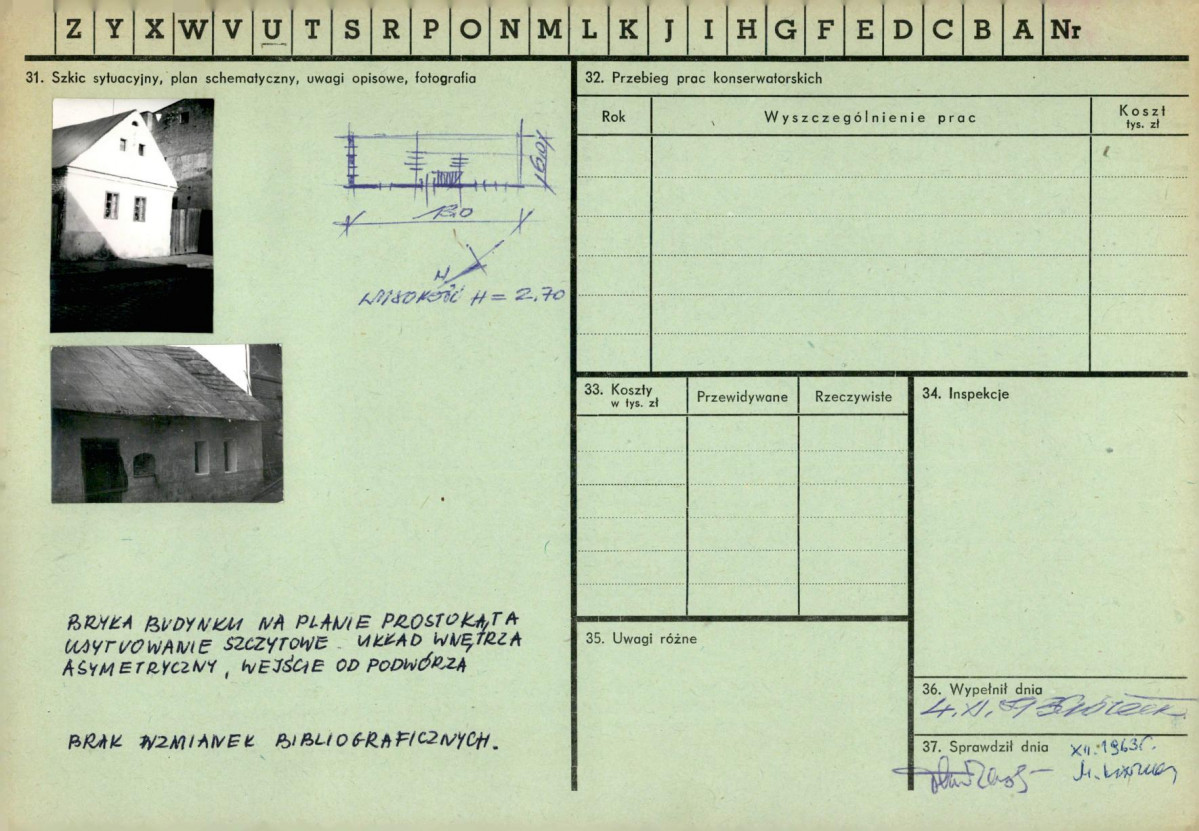 Z Y X W V U T S R P O N M L K J I H G F E D C B A Nr
31. Szkic sytuacyjny, plan schematyczny, uwagi opisowe, fotografia
13.0
N
WYSOKOŚĆ H = 2.70
BRYŁA BUDYNKU NA PLANIE PROSTOKĄTA
USYTUOWANIE SZCZYTOWE. UKŁAD WNĘTRZA
ASYMETRYCZNY, WEJŚCIE OD PODWÓRZA
BRAK WZMIANEK BIBLIOGRAFICZNYCH.
32. Przebieg prac konserwatorskich
Rok
Wyszczególnienie prac
Koszt
tys. zł
33. Koszty
w tys. zł
Przewidywane
Rzeczywiste
34. Inspekcje
35. Uwagi różne
36. Wypełnił dnia
4.XI.
37. Sprawdził dnia
XII.1963r.